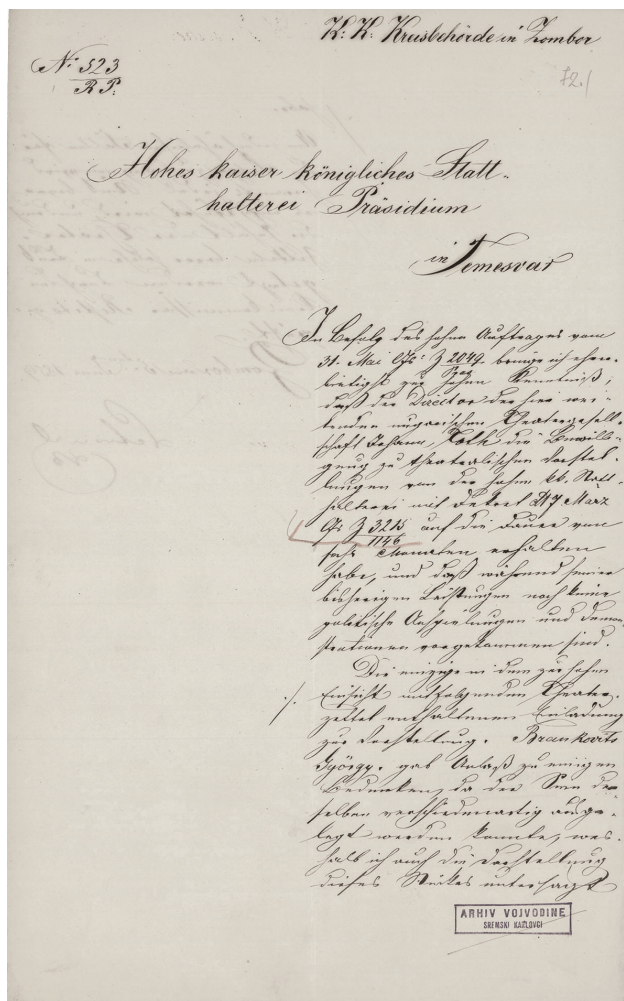 K: K: Kreisbehörde in Zombor
N: 523
R P:
72./
Hohes kaiser königliches Statt-
halterei Präsidium
in Temesvar
In Befolg des hohen Auftrages vom
31. Mai l Js: Z 2049 bringe ich ehrer-
bietigst zur hohen Kenntniß,
daß der Director der hier wei-
lenden ungarischen Theatergesell-
schaft Johann Toth die Bewilli-
gung zu theatralischen Vorstel-
lungen von der hohen kk. Statt-
halterei mit Dekret 17 März
l Js Z 3215 auf die Dauer von
1146
sechs Monaten erhalten
habe, und daß während seiner
bisherigen Leistungen noch keine
politische Anspielungen und Demon-
strationen vorgekommen sind.
Die einzige in dem zur hohen
./. Einsicht mitfolgenden Theater-
zettel enthaltenen Einladung
zur Vorstellung. Brankovits
György. gab Anlaß zu einigen
Bedenken, da der Sinn der-
selben verschiedenartig ausge-
legt werden konnte, wes-
halb ich auch die Vorstellung
dieses Stückes untersagt
ARHIV VOJVODINE
SREMSKI KARLOVCI